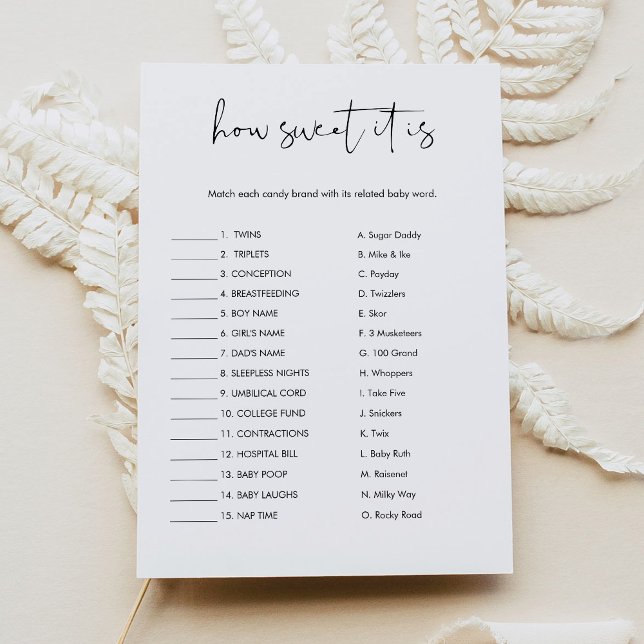 how sweet it is
Match each candy brand with its related baby word.
______ 1. TWINS A. Sugar Daddy
______ 2. TRIPLETS B. Mike & Ike
______ 3. CONCEPTION C. Payday
______ 4. BREASTFEEDING D. Twizzlers
______ 5. BOY NAME E. Skor
______ 6. GIRL'S NAME F. 3 Musketeers
______ 7. DAD'S NAME G. 100 Grand
______ 8. SLEEPLESS NIGHTS H. Whoppers
______ 9. UMBILICAL CORD I. Take Five
______ 10. COLLEGE FUND J. Snickers
______ 11. CONTRACTIONS K. Twix
______ 12. HOSPITAL BILL L. Baby Ruth
______ 13. BABY POOP M. Raisenet
______ 14. BABY LAUGHS N. Milky Way
______ 15. NAP TIME O. Rocky Road